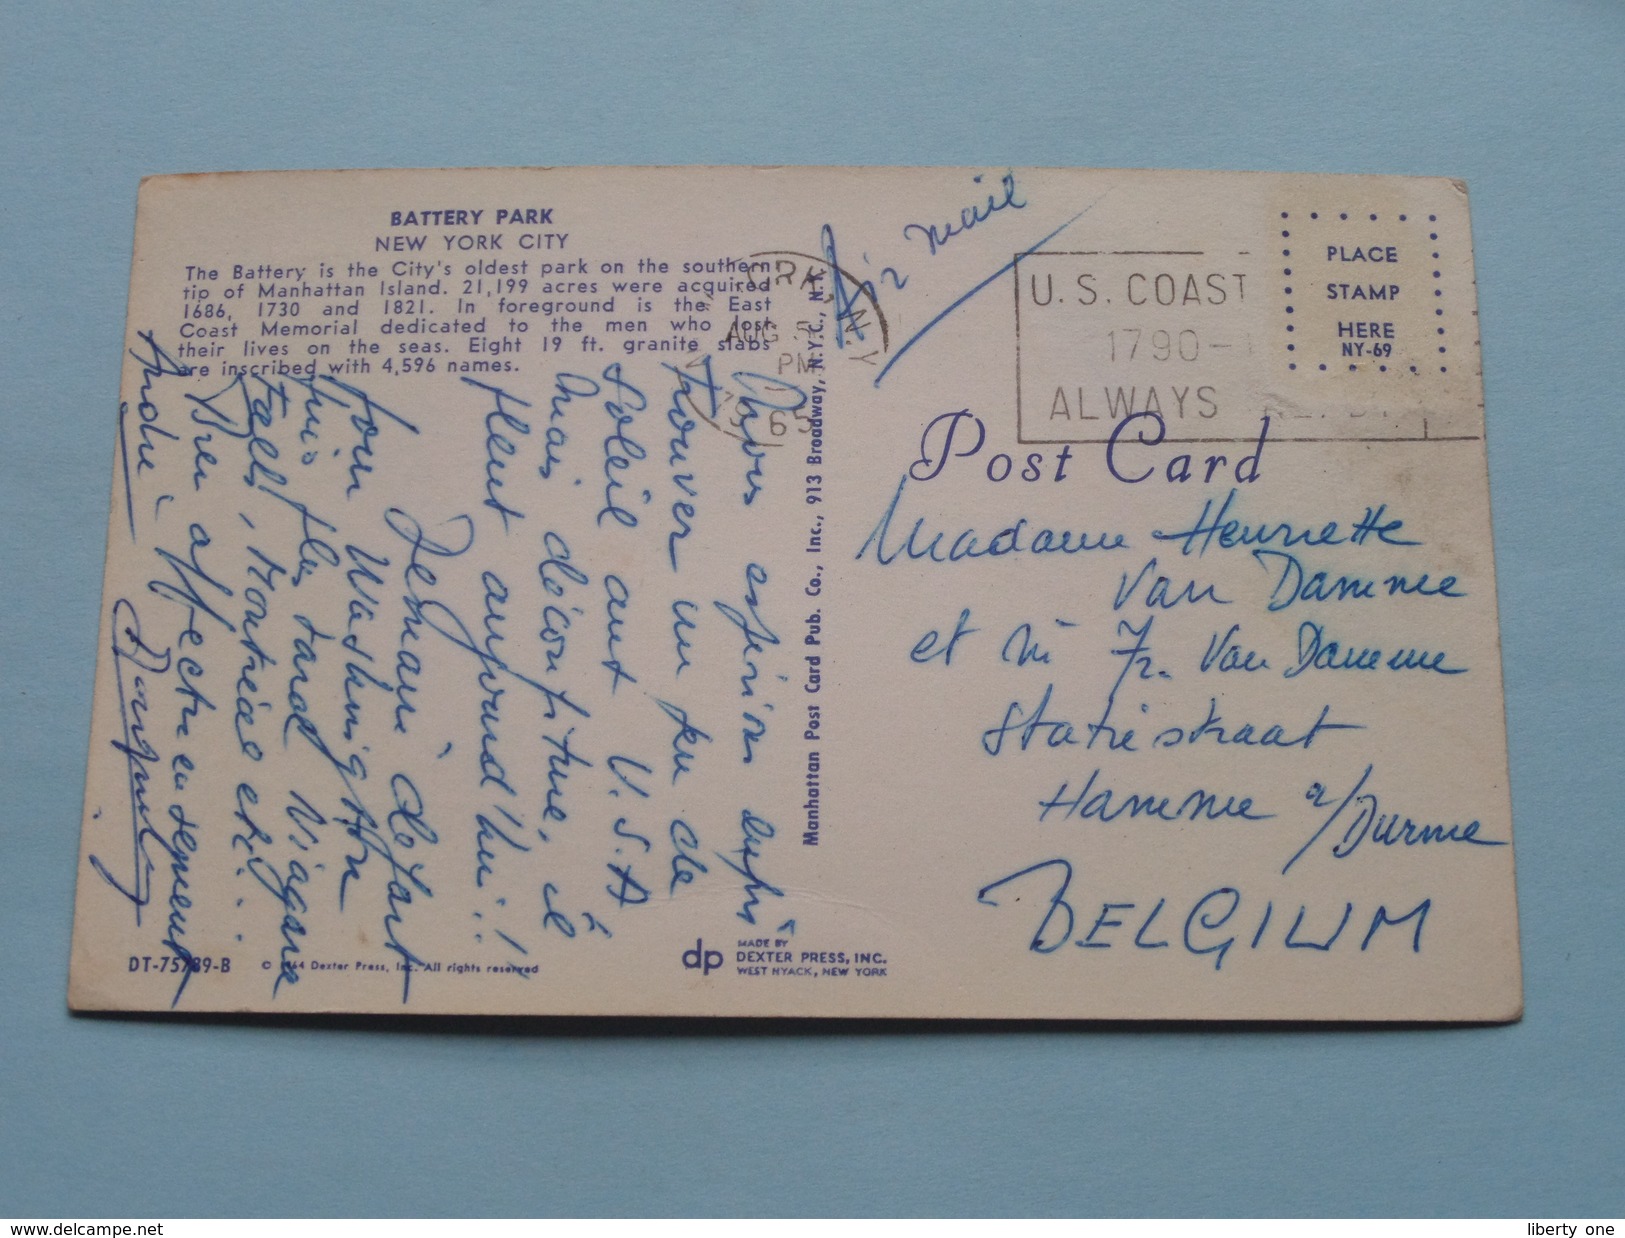 BATTERY PARK
NEW YORK CITY
The Battery is the City's oldest park on the southern
tip of Manhattan Island. 21,199 acres were acquired
1686, 1730 and 1821. In foreground is the East
Coast Memorial dedicated to the men who lost
their lives on the seas. Eight 19 ft. granite slabs
are inscribed with 4,596 names.
Nous espérions enfin
trouver un peu de
Soleil aux U.S.A
Mais déconfiture, il
pleut aujourd'hui!!
Demain départ
pour Washington
puis plus tard Niagara
Falls, Montréal etc..
Bien affectueusement
André
DT-75789-B
© 1964 Dexter Press, Inc. All rights reserved
dp
MADE BY
DEXTER PRESS, INC.
WEST NYACK, NEW YORK
Manhattan Post Card Pub. Co., Inc., 913 Broadway, N.Y.C., N.Y.
ORK, N.Y
AUG
PM
1965
Air mail
U.S. COAST
1790-
ALWAYS
PLACE
STAMP
HERE
NY-69
Post Card
Madame Henriette
Van Damme
et M Fr. Van Damme
Statiestraat
Hamme a/Durme
BELGIUM
delcampe.net
liberty one